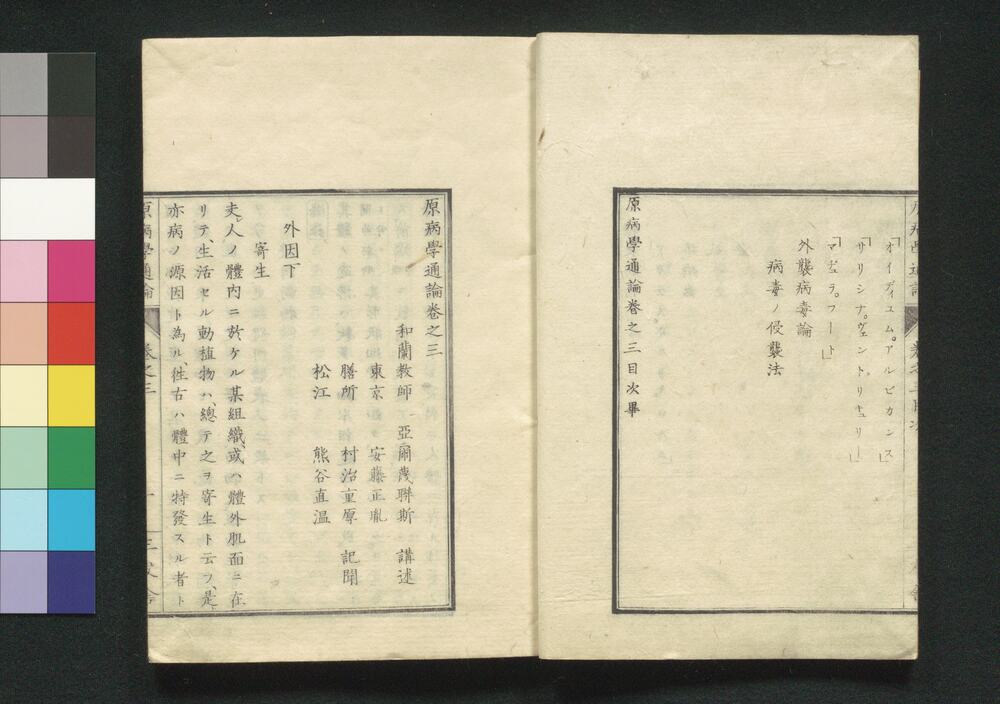 「オイディユム。アルビカンス」
「サリシナ。ヴェントリキュリー」
「マヂュラ。フート」
外襲病毒論
病毒ノ侵襲法
原病學通論卷之三目次畢
原病學通論卷之三
和蘭教師 亞爾蔑聯斯 講述
東京 安藤正胤
膳所 村治重厚 記聞
松江 熊谷直温
外因下
寄生
夫人ノ體内ニ於ケル某組織、或ハ體外肌面ニ在
リテ、生活セル動植物ハ、總テ之ヲ寄生ト云フ、是
亦病ノ源因ト為ル、徃古ハ體中ニ特發スル者ト
原病學通論 卷之三